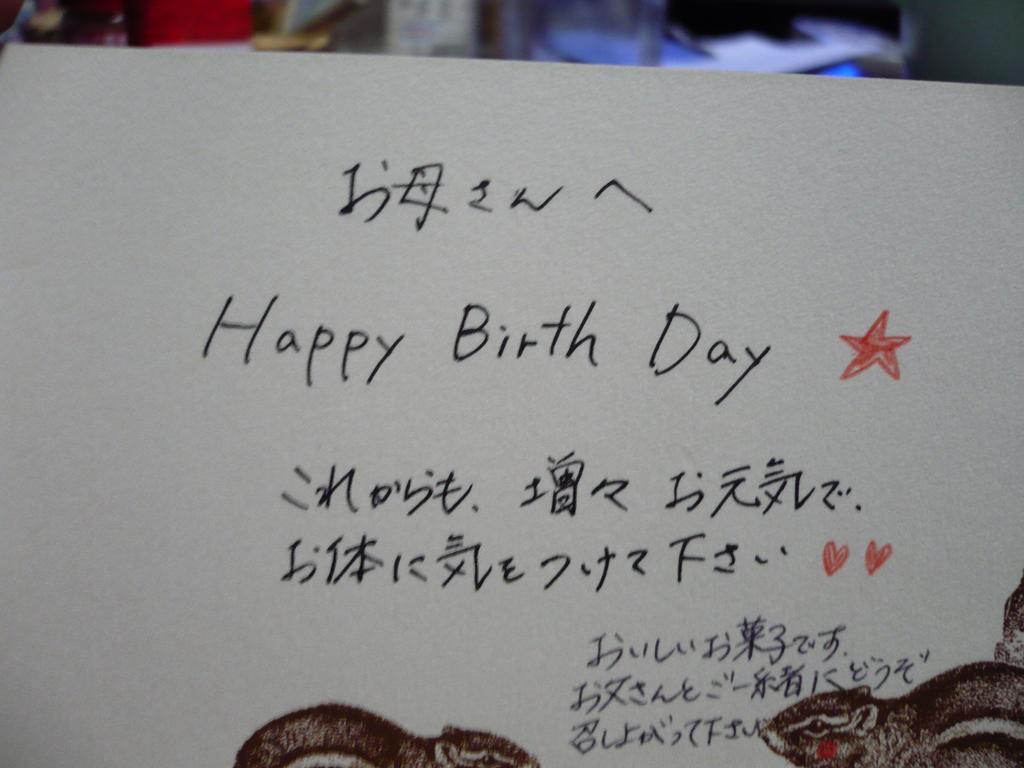 お母さんへ
Happy Birth Day
これからも、増々お元気で、
お体に気をつけて下さい
おいしいお菓子です。
お父さんとご一緒にどうぞ
召し上がって下さい